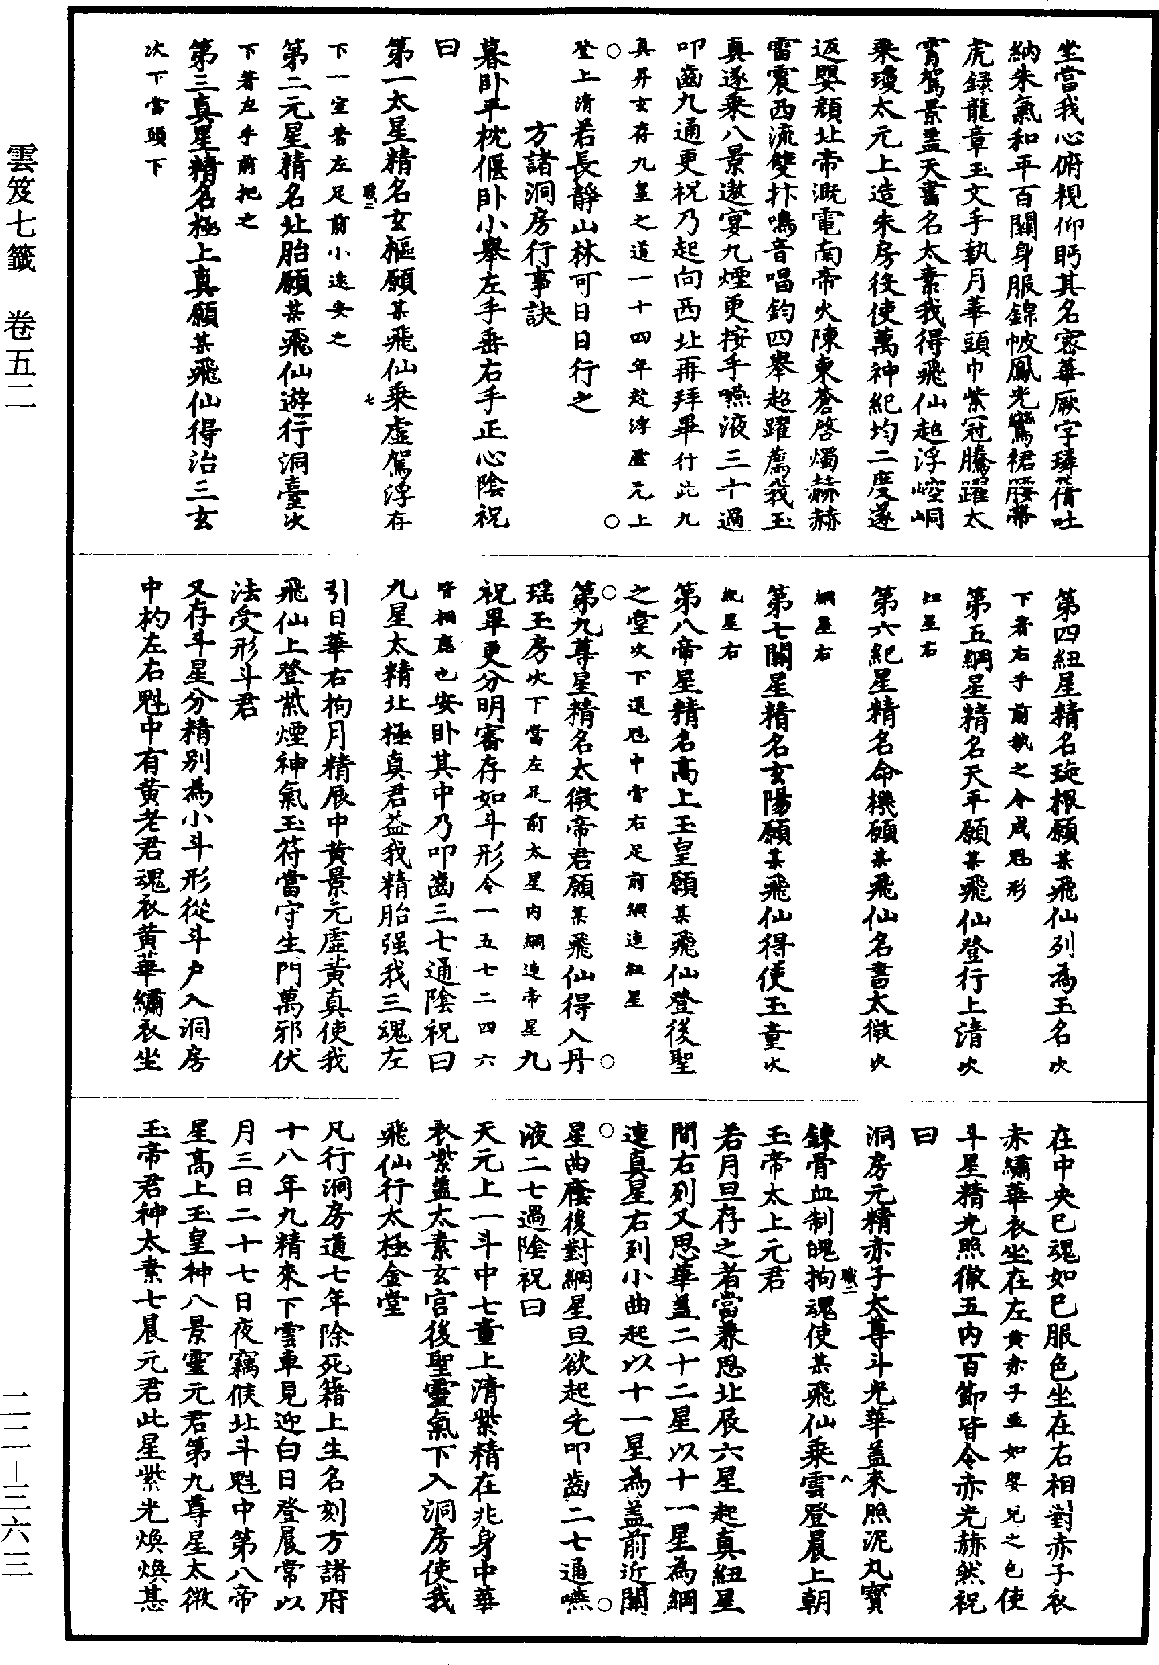 雲笈七籤　卷五二
坐當我心俯視仰眄其名密華厥字璘蒨吐
納朱氣和平百關身服錦帔鳳光鸞裙腰帶
虎錄龍章玉文手執月華頭巾紫冠騰躍太
霄駕景蓋天書名太素我得飛仙超浮崆峒
乘瓊太元上造朱房役使萬神紀均二度遂
返嬰顏北帝溉電南帝火陳東蒼啓燭赫赫
雷震西流雙抃鳴音唱鈞四舉超躍薦我玉
真遂乘八景遨宴九煙更按手嚥液三十過
叩齒九通更祝乃起向西北再拜畢行此九
真昇玄存九皇之道一十四年超浮虛元上
登上清若長靜山林可日日行之
方諸洞房行事訣
暮卧平枕偃卧小舉左手垂右手正心陰祝
曰
第一太星精名玄樞願某飛仙乘虛駕浮存
下一室若左足前小遠安之
第二元星精名北胎願某飛仙遊行洞臺次
下著左手前把之
第三真星精名極上真願某飛仙得治三玄
次下當頭下
第四紐星精名琁根願某飛仙列為玉名次
下著右手前執之令成魁形
第五綱星精名天平願某飛仙登行上清次
紐星右
第六紀星精名命機願某飛仙名書太微次
綱星右
第七關星精名玄陽願某飛仙得使玉童次
紀星右
第八帝星精名高上玉皇願某飛仙登後聖
之堂次下還魁中當右足前綱連紐星
第九尊星精名太微帝君願某飛仙得入丹
瑤玉房次下當左足前太星內綱連帝星九
祝畢更分明審存如斗形令一五七二四六
皆相應也安卧其中乃叩齒三七通陰祝曰
九星太精北極真君益我精胎强我三魂左
引日華右拘月精辰中黄景元虛黄真使我
飛仙上登紫煙神氣玉符當守生門萬邪伏
法受形斗君
又存斗星分精别為小斗形從斗户入洞房
中杓左右魁中有黄老君魂衣黄華繡衣坐
在中央已魂如已服色坐在右相對赤子衣
赤繡華衣坐在左黄赤子並如嬰兒之色使
斗星精光照徹五內百節皆令赤光赫然祝
曰
洞房元精赤子太尊斗光華蓋來照泥丸寳
鍊骨血制魄拘魂使某飛仙乘雲登晨上朝
玉帝太上元君
若月旦存之者當兼思北辰六星起真紐星
間右列又思華蓋二十二星以十一星為綱
連真星右列小曲起以十一星為蓋前近關
星曲䕃後對綱星旦欲起先叩齒二七通嚥
液二七過陰祝曰
天元上一斗中七童上清紫精在兆身中華
衣紫蓋太素玄宫後聖靈氣下入洞房使我
飛仙行太極金堂
凡行洞房道七年除死籍上生名刻方諸府
十八年九精來下雲車見迎白日登晨常以
月三日二十七日夜竊候北斗魁中第八帝
星高上玉皇神八景靈元君第九尊星太微
玉帝君神太素七晨元君此星紫光煥煥甚
二二－三六三